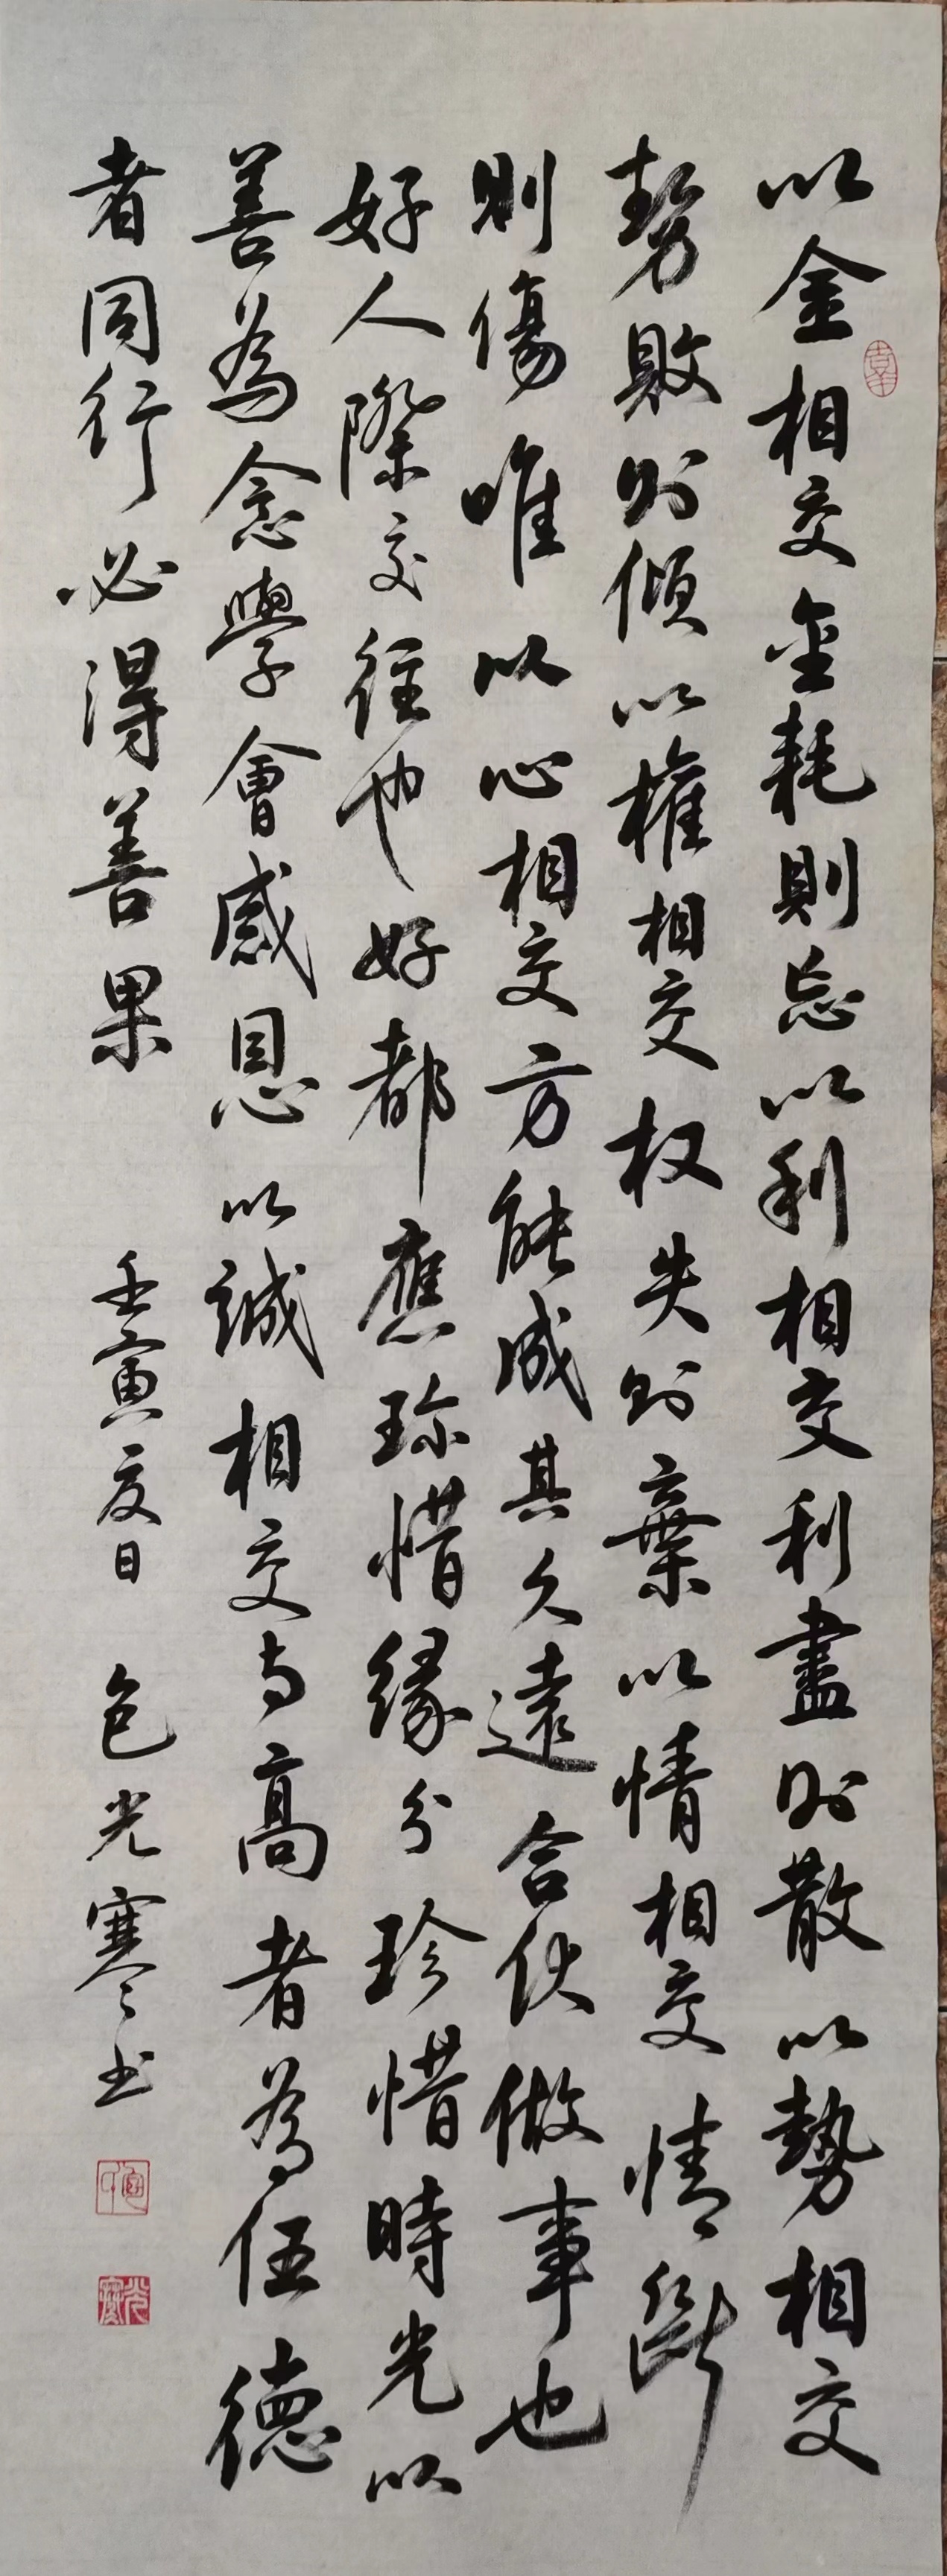 以金相交金耗則忘以利相交利盡則散以勢相交
勢敗則傾以權相交权失則棄以情相交情斷
則傷唯以心相交方能成其久遠合伙做事也
好人際交往也好都應珎惜緣分珍惜時光以
善為念學會感恩以誠相交与高者為伍德
者同行必得善果
壬寅夏日 包光寒书
光寒